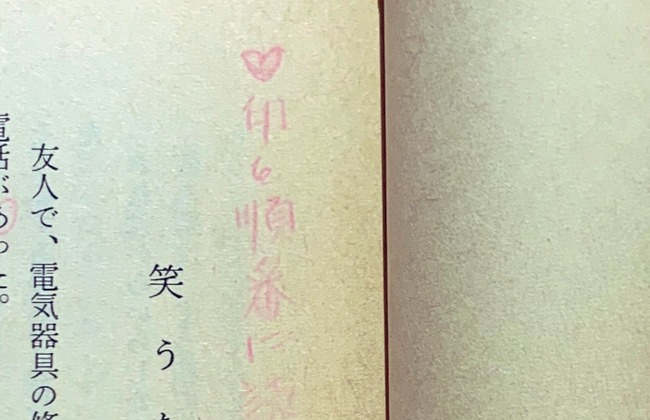 ♡印も順番に読
笑う
友人で、電気器具の修
電話があった。